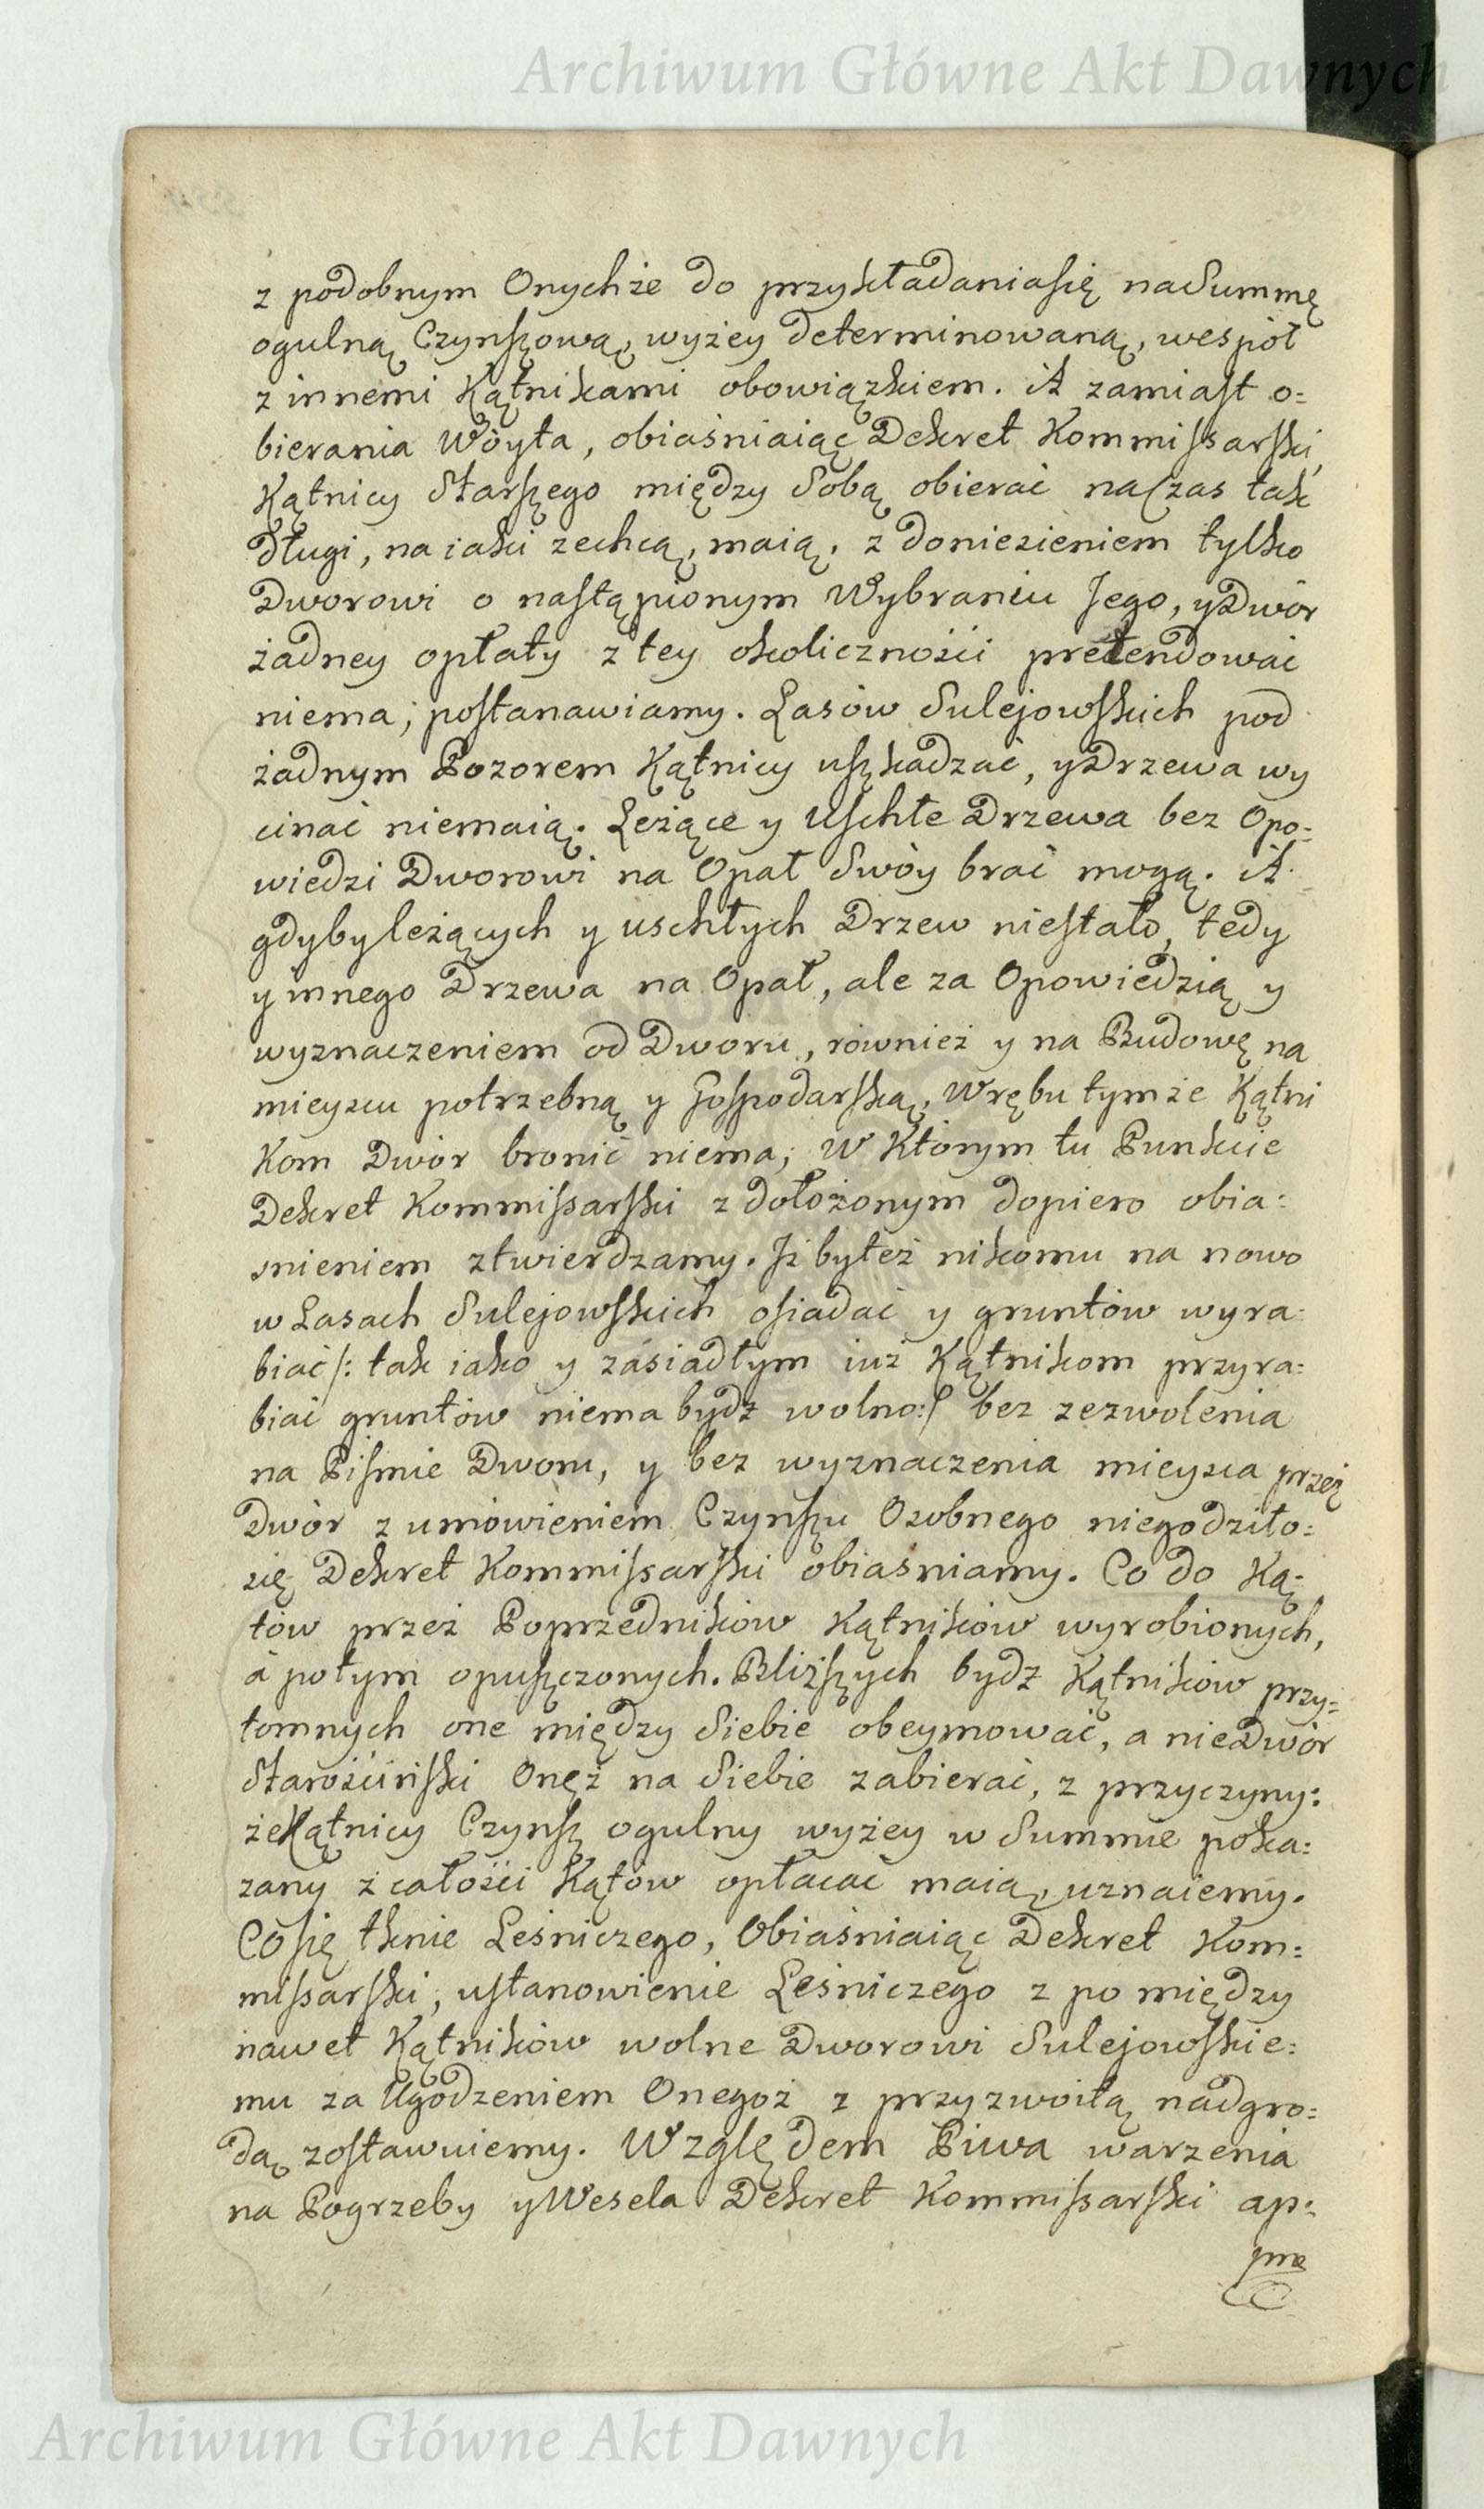 Archiwum Główne Akt Dawnych
z podobnym Onychże do przykładaniasię naSummę
ogulną Czynszową, wyżey determinowaną, wespół
z innemi Kątnikami obowiązkiem. A zamiast o=
bierania Wóyta, obiaśniaiąc Dekret Kommissarski,
Kątnicy Starszego między Sobą obierać naCzas tak
długi, na iaki zechcą, maią, z doniesieniem tylko
Dworowi o nastąpionym Wybraniu Jego, yDwór
żadney opłaty z tey okoliczności pretendować
niema; postanawiamy. Lasów Sulejowskich pod
żadnym Pozorem Kątnicy uszkadzać, yDrzewa wy
cinać niemaią. Leżące y Uschłe Drzewa bez Opo=
wiedzi Dworowi na Opał Swóy brać mogą. A
gdybyleżących y uschłych Drzew niestało, tedy
y innego Drzewa na Opał, ale za Opowiedzią y
wyznaczeniem od Dworu, również y na Budowę na
mieyscu potrzebną y Gospodarską, Wrębu tymże Kątni
Kom Dwór bronić niema; W Którym tu Punkcie
Dekret Kommissarski z dołożonym dopiero obia=
snieniem ztwierdzamy. Jż byteż nikomu na nowo
w Lasach Sulejowskich osiadać y gruntów wyra=
biać /: tak iako y zasiadłym iuż Kątnikom przyra=
biać gruntów niema bydź wolno:/ bez zezwolenia
na Piśmie Dworu, y bez wyznaczenia mieysca przez
Dwór z umówieniem Czynszu Osobnego niegodziło=
się Dekret Kommissarski obiaśniamy. Co do Ką=
tów przez Poprzedników Kątników wyrobionych,
a potym opuszczonych. Bliższych bydź Kątników przy=
tomnych one między Siebie obeymować, a nieDwór
Starościński Onęż na Siebie zabierać, z przyczyny:
żeKątnicy Czynsz ogulny wyżey w Summie poka=
zany z całości Kątów opłacać maią, uznaiemy.
Cosię tknie Leśniczego, Obiaśniaiąc Dekret Kom=
missarski, ustanowienie Leśniczego z po między
nawet Kątników wolne Dworowi Sulejowskie=
mu za Ugodzeniem Onegoż z przyzwoitą nadgro=
dą zostawuiemy. Względem Piwa warzenia
na Pogrzeby yWesela Dekret Kommissarski ap=
Archiwum Główne Akt Dawnych